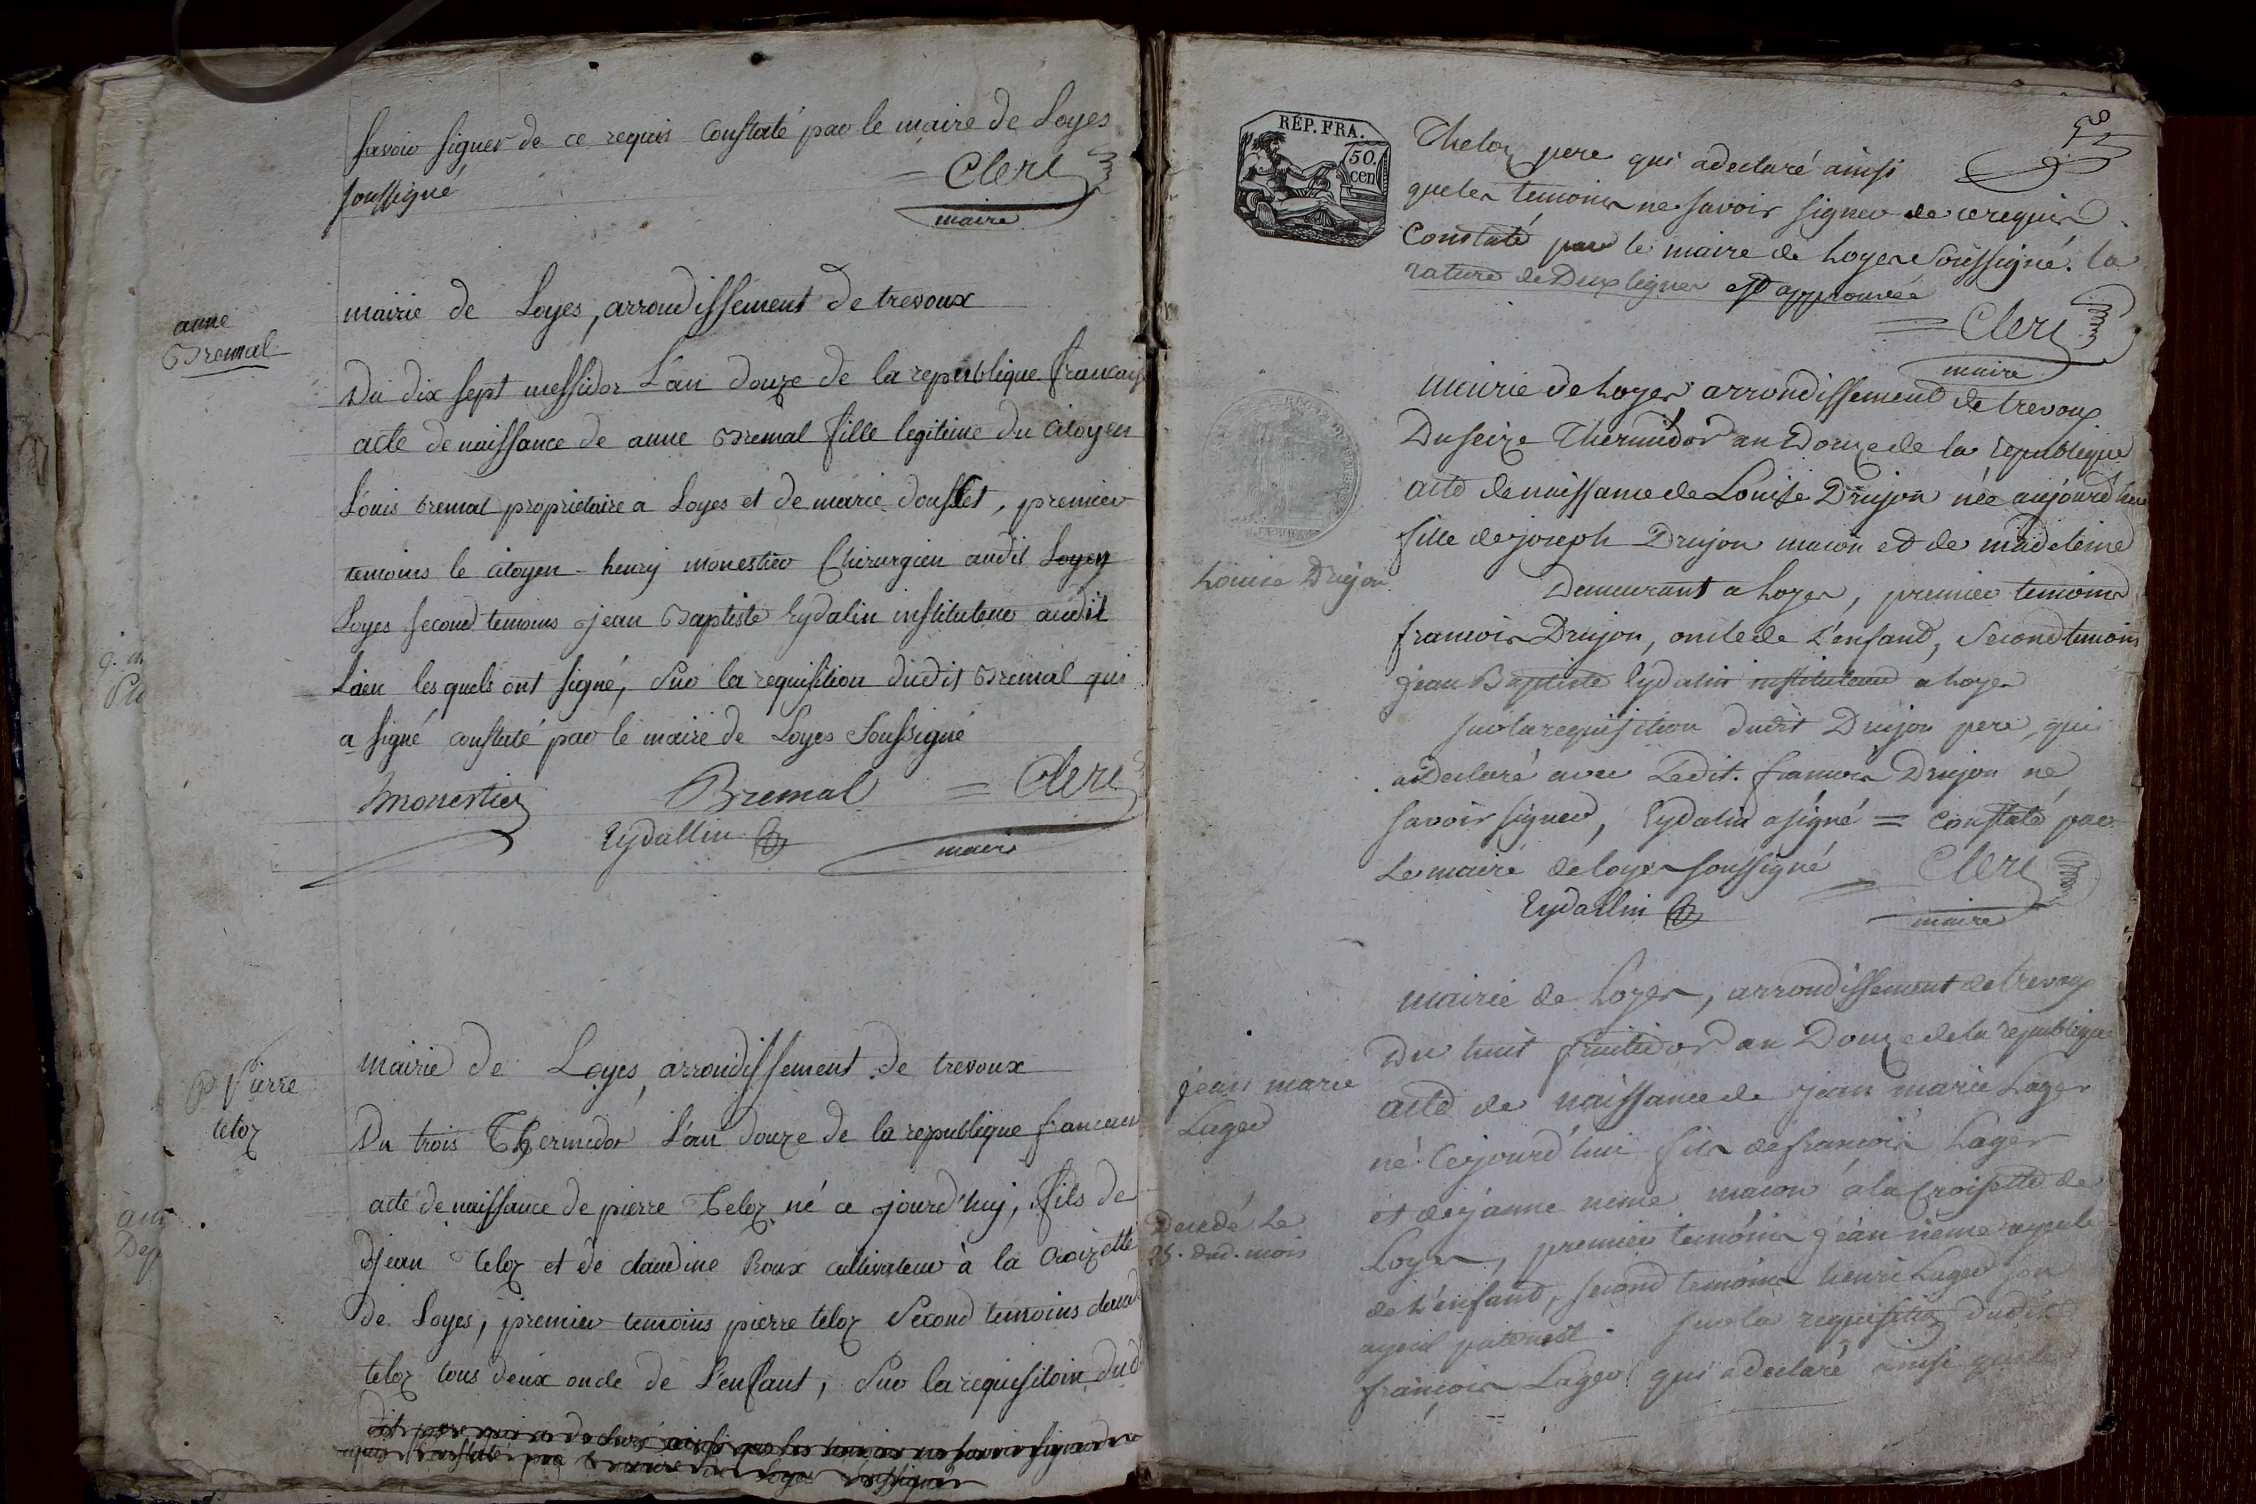 savoir signer de ce requis Constaté par le maire de Loyes
soussigné
= Clerc
maire
anne
Bremal
mairie de Loyes, arrondissement de trevoux
Du dix sept messidor L'an douze de la republique francaise
acte de naissance de anne Bremal fille legitime du Citoyen
Louis bremal proprietaire a Loyes et de marie dousset, premier
temoins le citoyen henry monestier Chirurgien audit Loyes
Loyes second temoins jean Baptiste Eydalin instituteur audit
Lieu lesquels ont signé, sur la requisition dudit Bremal qui
a signé constaté par le maire de Loyes soussigné
Monestier Bremal = Clerc
Eydallin maire
Pierre
teloz
mairie de Loyes, arrondissement de trevoux
Du trois Thermidor L'an douze de la republique francaise
acte de naissance de pierre Teloz né ce jourd'huy, fils de
jean Teloz et de claudine Roux cultivateur à la Croizette
de Loyes, premier temoins pierre teloz Second temoins claude
teloz tous deux oncle de L'enfant, sur la requisitoin dud
dit pere qui a declaré ainsi que les temoins ne savoir signer de ce
requis Constaté par le maire de Loyes soussigné
REP. FRA.
50.
cen
Theloz pere qui a declaré ainsi
que les temoins ne savoir signer de ce requis
Constaté par le maire de Loyes Soussigné. la
rature de Deux lignes est approuvée
= Clerc
maire
mairie de Loyes arrondissement de trevoux
Du seize Thermidor an Douze de la republique
acte de naissance de Louise Drujon née aujourd'hui
Louise Drujon
fille de joseph Drujon macon et de madeleine
Demeurant a Loyes, premier temoins
francois Drujon, oncle de L'enfant, Second temoins
jean Baptiste Eydalin instituteur a Loyes
sur la requisition dudit Drujon pere, qui
a declaré avec Ledit francois Drujon ne
savoir signer, Eydalin a signé = Constaté par
Le maire de loyes soussigné = Clerc
Eydallin maire
mairie de Loyes, arrondissement de trevoux
Du huit fructidor an Douze de la republique
jean marie
Lager
acte de naissance de jean marie Lager
né Cejourd'hui fils de francois Lager
et de jeanne nême macon a la Croisette de
Decedé Le
25. dud. mois
Loyes, premier temoins jean nême ayeule
de L'enfant, second temoins henri Lager son
ayeul paternel. sur la requisition dudit
francois Lager qui a declaré ainsi que les